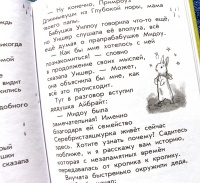 — Ну конечно, Примроуз
Длинноушей из Глубокой норы, мама
твоего папы.
Бабушка Уиллоу говорила что-то ещё,
но Уишер слушала её вполуха, всё
ещё думая о прапрабабушке Мидоу.
— Как бы мне хотелось с ней
познакомиться! — словно
в продолжение своих мыслей,
сказала Уишер. — Может,
она объяснила бы мне, как
всё это происходит.
Тут в разговор вступил
дедушка Айбрайт:
— Мидоу была
замечательная! Именно
благодаря ей семейство
Серебристашкурка живёт сейчас
здесь. Хотите узнать почему? Садитесь
поближе, и я расскажу вам историю,
которая с незапамятных времён
передавалась от кролика к кролику.
Внучата быстренько окружили деда,